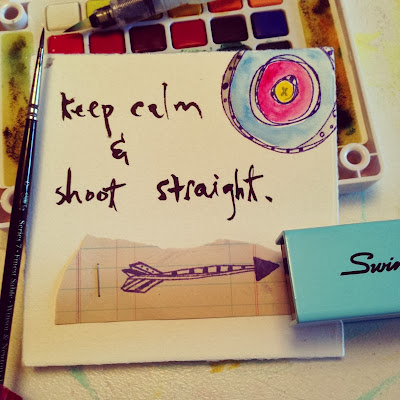 Keep calm
&
shoot straight.
Swin
Series 7 - Finest Sable - Winsor & Newton